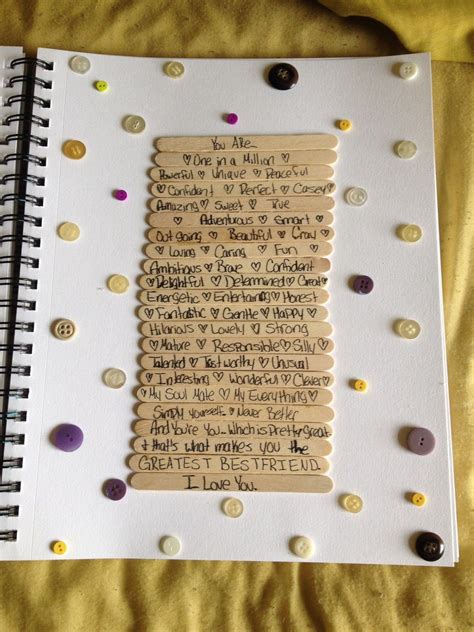 You Are...
♡ One in a Million ♡
Powerful ♡ Unique ♡ Peaceful
♡ Confident ♡ Perfect ♡ Casey
Amazing ♡ Sweet ♡ True
♡ Adventurous ♡ Smart ♡
Out going ♡ Beautiful ♡ Cray
♡ Loving ♡ Caring ♡ Fun ♡
Ambitious ♡ Brave ♡ Confident
♡ Delightful ♡ Determined ♡ Great
Energetic ♡ Entertaining ♡ Honest
♡ Fantastic ♡ Gentle ♡ Happy ♡
Hilarious ♡ Lovely ♡ Strong
♡ Mature ♡ Responsible ♡ Silly
Talented ♡ Trustworthy ♡ Unusual
♡ Interesting ♡ Wonderful ♡ Clever
♡ My Soul Mate ♡ My Everything ♡
Simply Yourself ♡ Never Better
And You're You... Which is Pretty Great
& that's what makes you the
GREATEST BESTFRIEND.
I Love You.